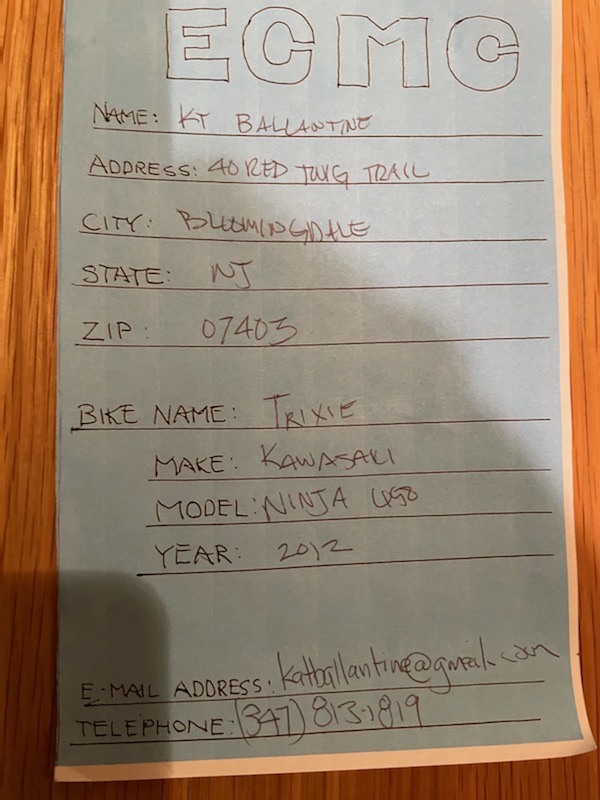 ECMC
NAME: KT BALLANTINE
ADDRESS: 40 RED TWIG TRAIL
CITY: BLOOMINGDALE
STATE: NJ
ZIP: 07403
BIKE NAME: TRIXIE
MAKE: KAWASAKI
MODEL: NINJA 650
YEAR: 2012
E-MAIL ADDRESS: katballantine@gmail.com
TELEPHONE: (347) 813-1819